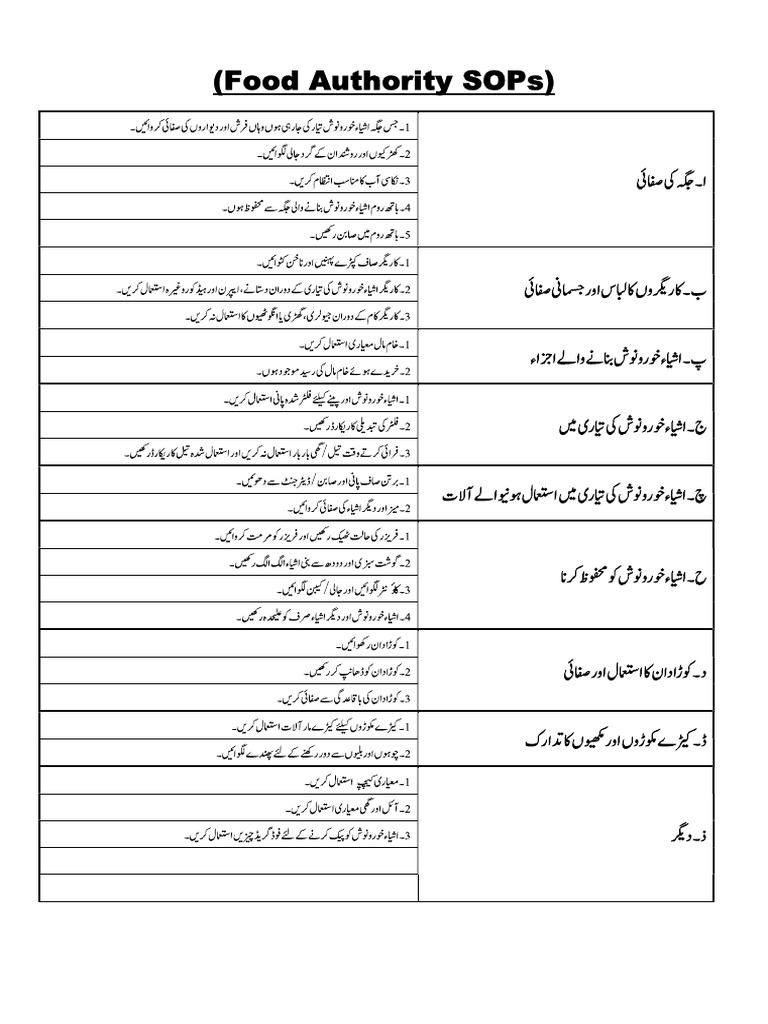 (Food Authority SOPs)
ا۔ جگہ کی صفائی
1۔ جس جگہ اشیاء خورونوش تیار کی جا رہی ہوں وہاں فرش اور دیواروں کی صفائی کروائیں۔
2۔ کھڑکیوں اور روشندان کے گرد جالی لگوائیں۔
3۔ نکاسی آب کا مناسب انتظام کریں۔
4۔ باتھ روم اشیاء خورونوش بنانے والی جگہ سے محفوظ ہوں۔
5۔ باتھ روم میں صابن رکھیں۔
ب۔ کاریگروں کا لباس اور جسمانی صفائی
1۔ کاریگر صاف کپڑے پہنیں اور ناخن کٹوائیں۔
2۔ کاریگر اشیاء خورونوش کی تیاری کے دوران دستانے، ایپرن اور ہیڈ کور وغیرہ استعمال کریں۔
3۔ کاریگر کام کے دوران جیولری، گھڑی یا انگوٹھیوں کا استعمال نہ کریں۔
پ۔ اشیاء خورونوش بنانے والے اجزاء
1۔ خام مال معیاری استعمال کریں۔
2۔ خریدے ہوئے خام مال کی رسید موجود ہوں۔
ج۔ اشیاء خورونوش کی تیاری میں
1۔ اشیاء خورونوش اور پینے کیلئے فلٹر شدہ پانی استعمال کریں۔
2۔ فلٹر کی تبدیلی کا ریکارڈ رکھیں۔
3۔ فرائی کرتے وقت تیل/گھی بار بار استعمال نہ کریں اور استعمال شدہ تیل کا ریکارڈ رکھیں۔
چ۔ اشیاء خورونوش کی تیاری میں استعمال ہونیوالے آلات
1۔ برتن صاف پانی اور صابن/ڈیٹرجنٹ سے دھوئیں۔
2۔ میز اور دیگر اشیاء کی صفائی کروائیں۔
ح۔ اشیاء خورونوش کو محفوظ کرنا
1۔ فریزر کی حالت ٹھیک رکھیں اور فریزر کو مرمت کروائیں۔
2۔ گوشت سبزی اور دودھ سے بنی اشیاء الگ الگ رکھیں۔
3۔ کاؤنٹر لگوائیں اور جالی/کیبن لگوائیں۔
4۔ اشیاء خورونوش اور دیگر اشیاء صرف کو علیحدہ رکھیں۔
د۔ کوڑا دان کا استعمال اور صفائی
1۔ کوڑا دان رکھوائیں۔
2۔ کوڑا دان کو ڈھانپ کر رکھیں۔
3۔ کوڑا دان کی باقاعدگی سے صفائی کریں۔
ڈ۔ کیڑے مکوڑوں اور مکھیوں کا تدارک
1۔ کیڑے مکوڑوں کیلئے کیڑے مار آلات استعمال کریں۔
2۔ چوہوں اور بلیوں سے دور رکھنے کے لئے پھندے لگوائیں۔
ذ۔ دیگر
1۔ معیاری کیچپ استعمال کریں۔
2۔ آئل اور گھی معیاری استعمال کریں۔
3۔ اشیاء خورونوش کو پیک کرنے کے لئے فوڈ گریڈ چیزیں استعمال کریں۔